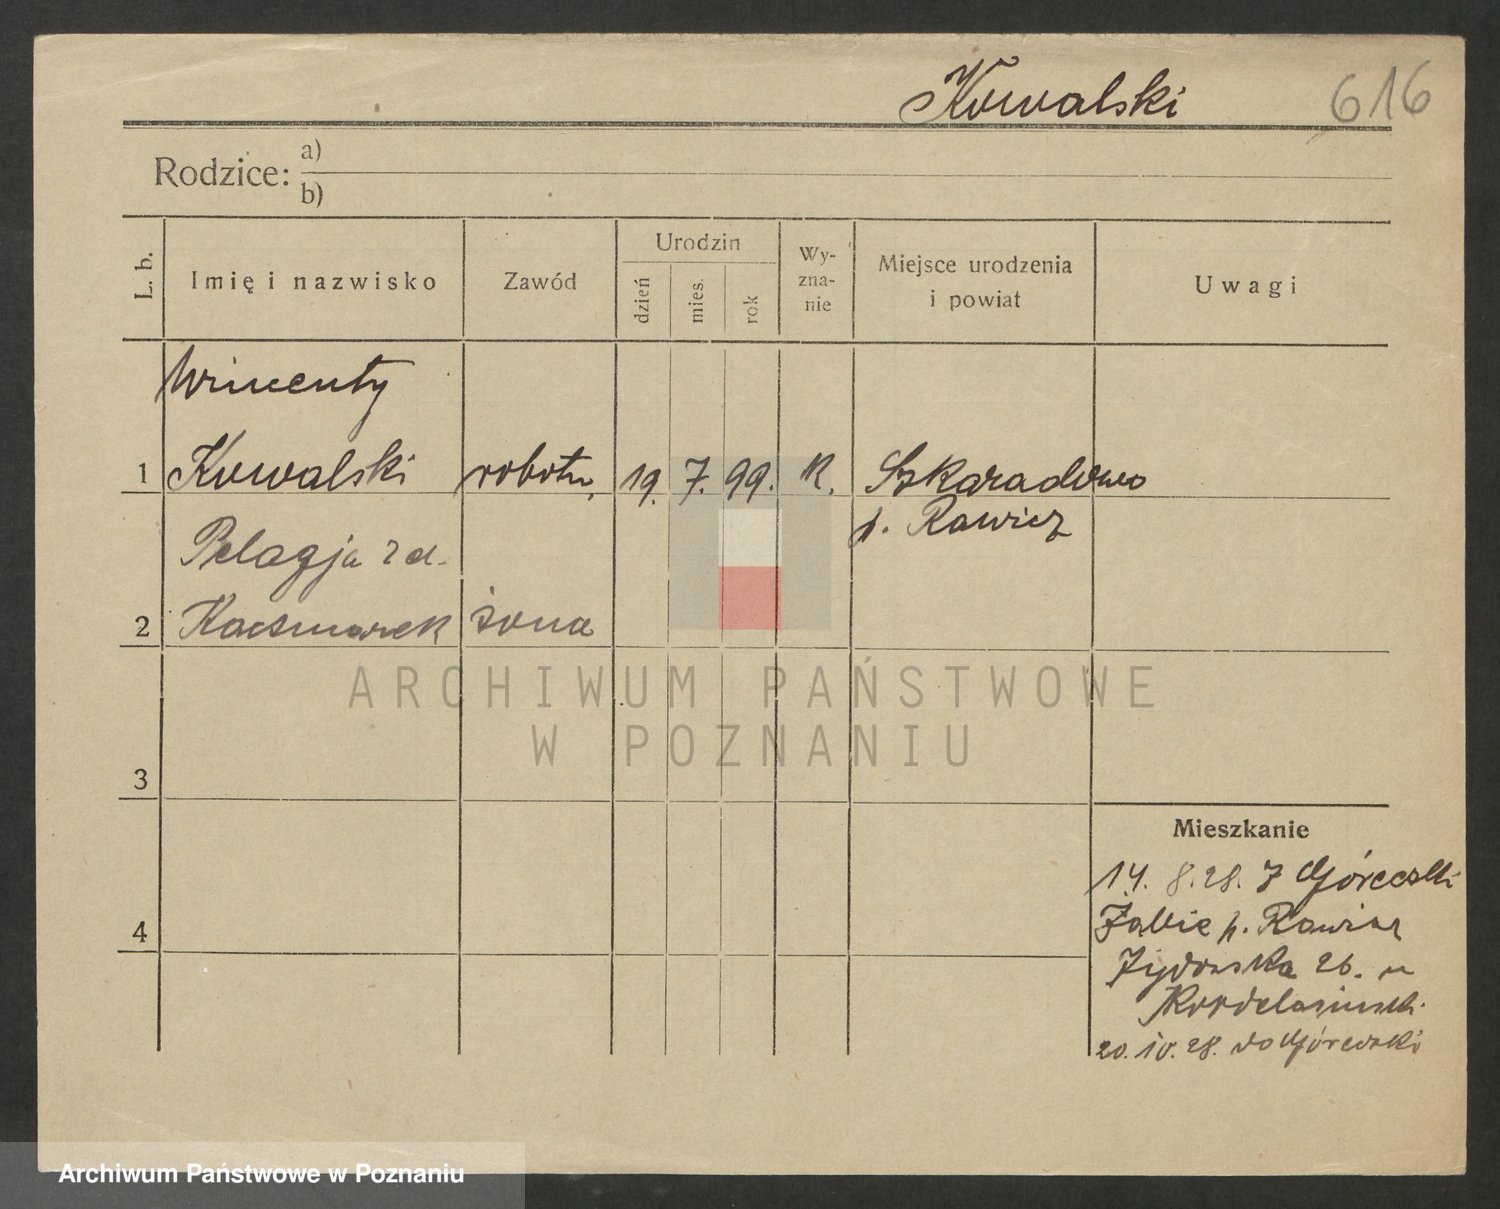 Kowalski 616
Rodzice: a)
b)
L. b. Imię i nazwisko Zawód Urodzin dzień mies. rok Wy-
zna-
nie Miejsce urodzenia
i powiat Uwagi
Wincenty
1 Kowalski robotn. 19. 7. 99. K. Szkaradowo
p. Rawicz
Pelagja z d.
2 Kaczmarek żona
3
4
Mieszkanie
14. 8. 28. z Góreczki
p. Rawicz
Żydowska 26. u
20. 10. 28. do Góreczki
ARCHIWUM PAŃSTWOWE
W POZNANIU
Archiwum Państwowe w Poznaniu